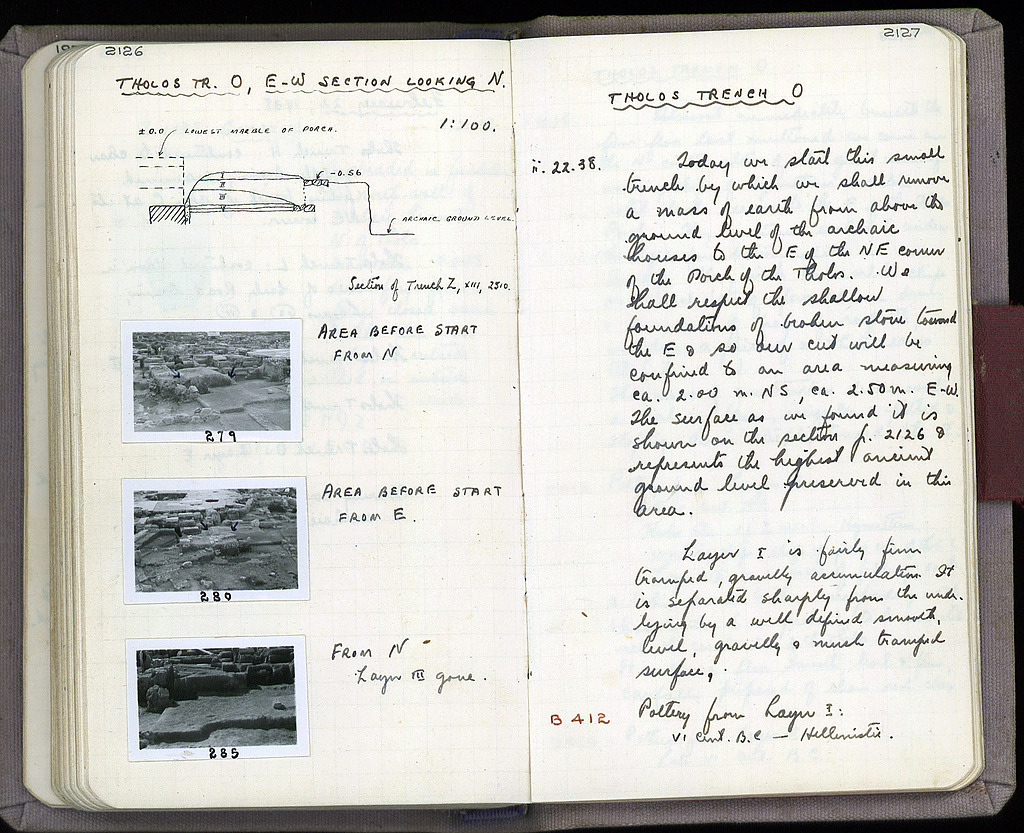 2126
THOLOS TR. O, E-W SECTION LOOKING N.
1:100.
±0.0 LOWEST MARBLE OF PORCH.
-0.56
I
II
III
ARCHAIC GROUND LEVEL
Section of Trench Z, XIII, 2510.
AREA BEFORE START
FROM N
279
AREA BEFORE START
FROM E.
280
FROM N
Layer III gone.
285
2127
THOLOS TRENCH O
ii. 22.38. Today we start this small
trench by which we shall remove
a mass of earth from above the
ground level of the archaic
houses to the E of the NE corner
of the Porch of the Tholos. We
shall respect the shallow
foundations of broken stone toward
the E & so our cut will be
confined to an area measuring
ca. 2.00 m. NS, ca. 2.50 m. E-W.
The surface as we found it is
shown on the section p. 2126 &
represents the highest ancient
ground level preserved in this
area.
Layer I is fairly firm
tramped, gravelly accumulation. It
is separated sharply from the under-
lying by a well defined smooth,
level, gravelly & much tramped
surface.
B 412 Pottery from Layer I:
VI Cent. B.C. — Hellenistic.